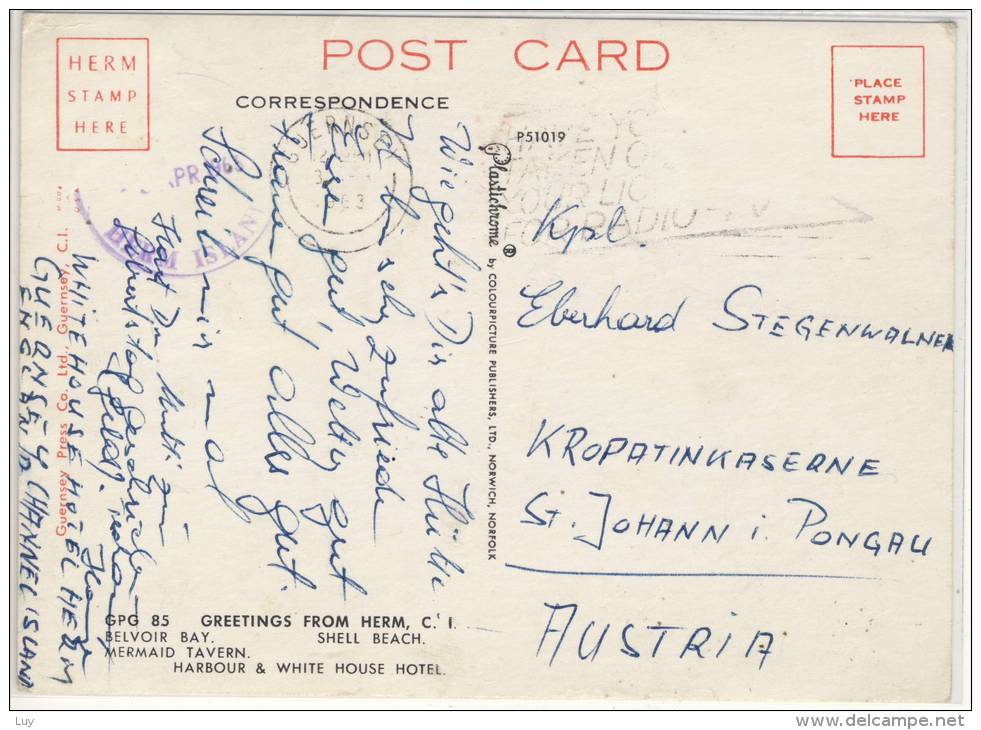 POST CARD
HERM
STAMP
HERE
PLACE
STAMP
HERE
CORRESPONDENCE
P51019
GUERNSEY
1963
APR 196
HERM ISLAND
HAVE YO
TAKEN O
YOUR LIC
FOR RADIO
Wie geht's Dir alte Hütte
Ich bin sehr zufrieden
Essen gut, Wetter gut
Frauen gut, alles gut.
Schreib mir mal
Hast Du Mutti zum
Geburtstag
WHITE HOUSE HOTEL HERM
GUERNSEY CHANNEL ISLAND
ENGLAND
Kpl.
Eberhard STEGENWALNER
KROPATINKASERNE
St. JOHANN i. PONGAU
AUSTRIA
Plastichrome ® by COLOURPICTURE PUBLISHERS, LTD., NORWICH, NORFOLK
Guernsey Press Co. Ltd., Guernsey, C.I.
GPG 85 GREETINGS FROM HERM, C. I.
BELVOIR BAY. SHELL BEACH.
MERMAID TAVERN.
HARBOUR & WHITE HOUSE HOTEL.
Luy
www.delcampe.net